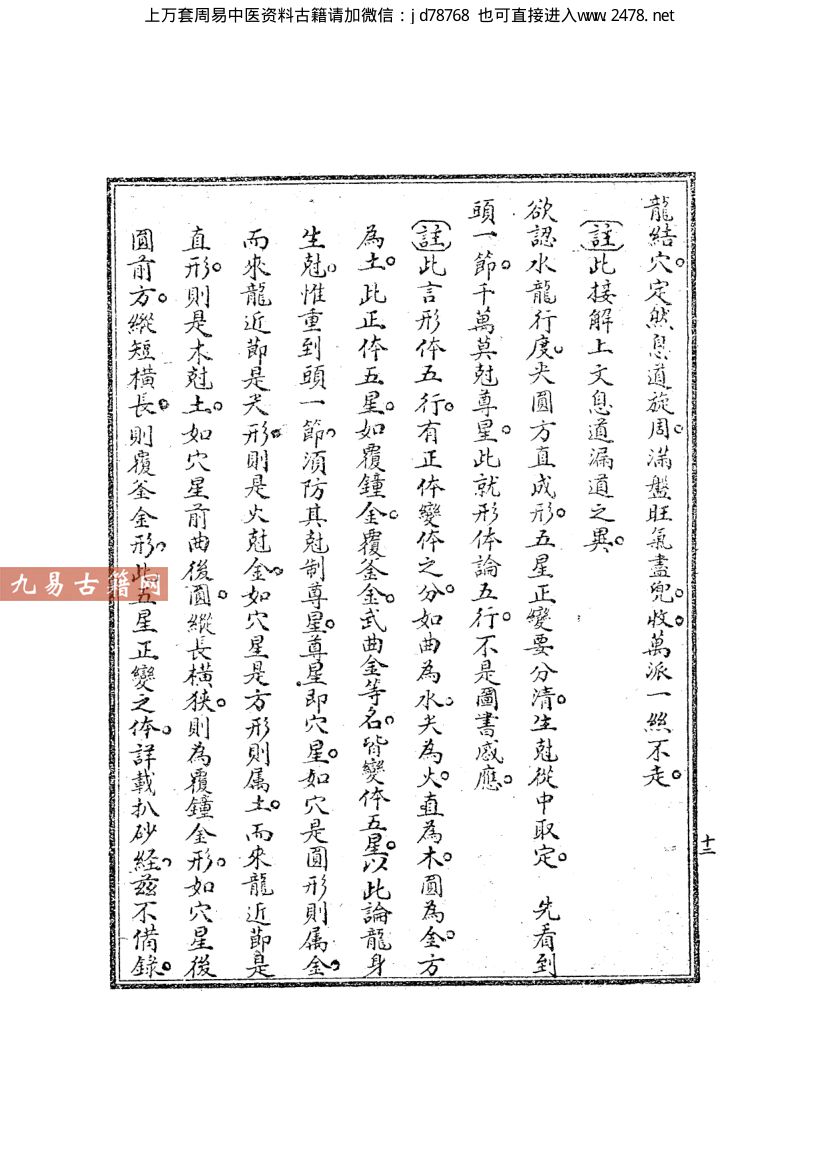 上万套周易中医资料古籍请加微信：jd78768 也可直接进入www.2478.net
龍結穴。定然息道旋周。滿盤旺氣盡兜。收萬派一絲不走。
註此接解上文息道漏道之異。
欲認水龍行度。尖圓方直成形。五星正變要分清。生尅從中取定。 先看到
頭一節。千萬莫尅尊星。此就形体論五行。不是圖書感應。
註此言形体五行。有正体變体之分。如曲為水。尖為火。直為木。圓為金。方
為土。此正体五星。如覆鐘金。覆釜金。武曲金等名。皆變体五星。以此論龍身
生尅。惟重到頭一節。須防其尅制尊星。尊星即穴星。如穴是圓形則属金。
而來龍近節是尖形。則是火尅金。如穴星是方形則属土。而來龍近節是
直形。則是木尅土。如穴星前曲後圓。縱長橫狹。則為覆鐘金形。如穴星後
圓前方。縱短橫長。則覆釜金形。此五星正變之体。詳載扒砂経。茲不備錄。
十三
九易古籍网